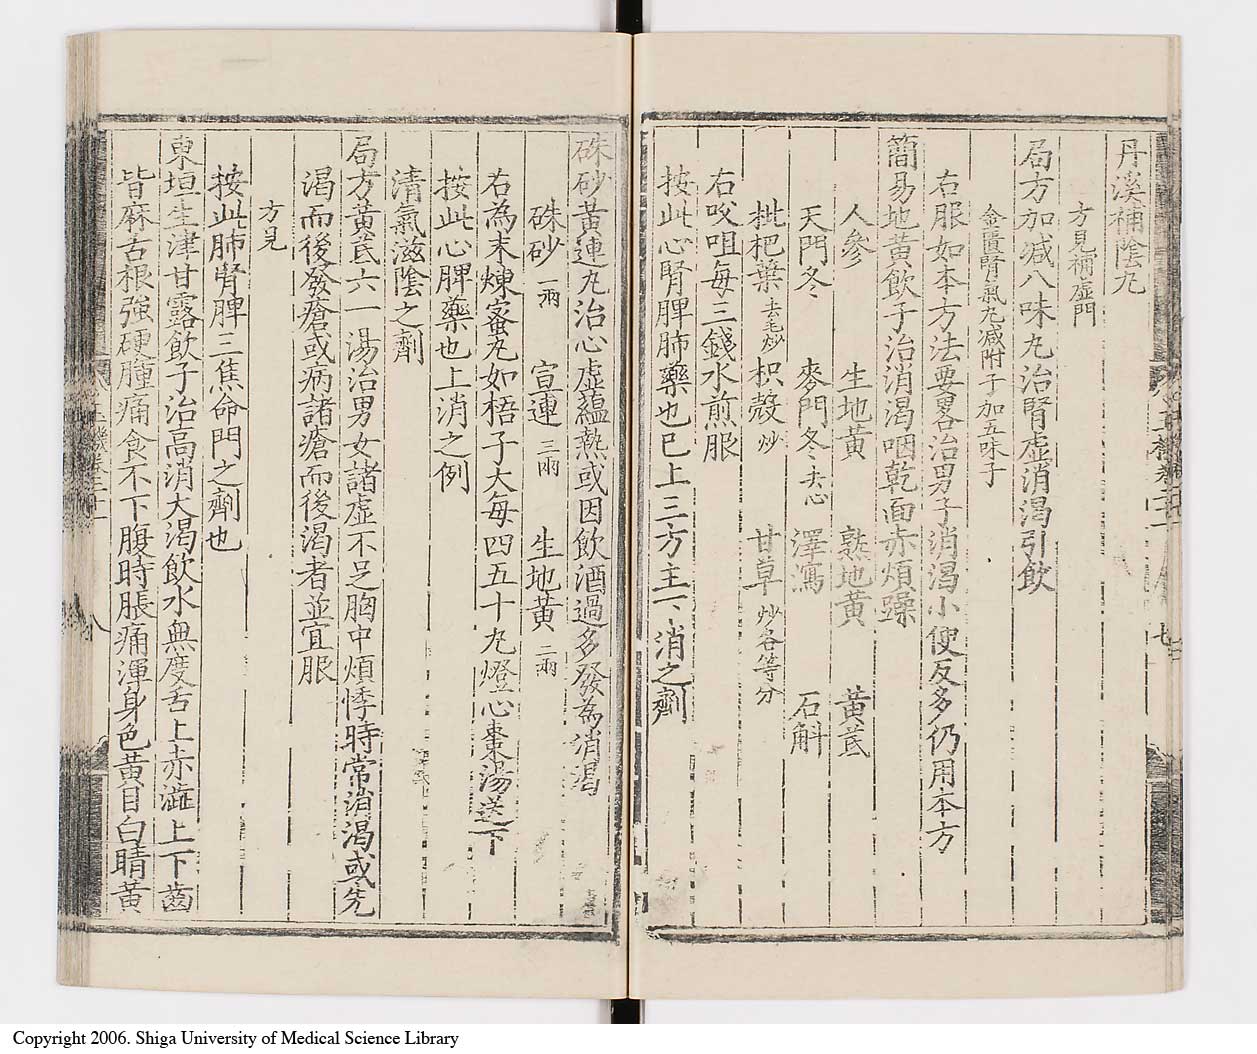 丹溪補陰丸
方見補虛門
局方加减八味丸治腎虛消渴引飲
金匱腎氣丸减附子加五味子
右服如本方法要畧治男子消渴小便反多仍用本方
簡易地黃飲子治消渴咽乾面赤煩躁
人參 生地黃 熟地黃 黃芪
天門冬 麥門冬去心 澤瀉 石斛
枇杷葉去毛炒 枳殼炒 甘草炒各等分
右㕮咀每三錢水煎服
按此心腎脾肺藥也已上三方主下消之劑
硃砂黃連丸治心虛蘊熱或因飲酒過多發為消渴
硃砂一兩 宣連三兩 生地黃二兩
右為末煉蜜丸如梧子大每四五十丸燈心棗湯送下
按此心脾藥也上消之例
清氣滋陰之劑
局方黃芪六一湯治男女諸虛不足胸中煩悸時常消渴或先
渴而後發瘡或病諸瘡而後渴者並宜服
方見
按此肺腎脾三焦命門之劑也
東垣生津甘露飲子治高消大渴飲水無度舌上赤澁上下齒
皆麻舌根強硬腫痛食不下腹時脹痛渾身色黃目白睛黃
八
Copyright 2006. Shiga University of Medical Science Library